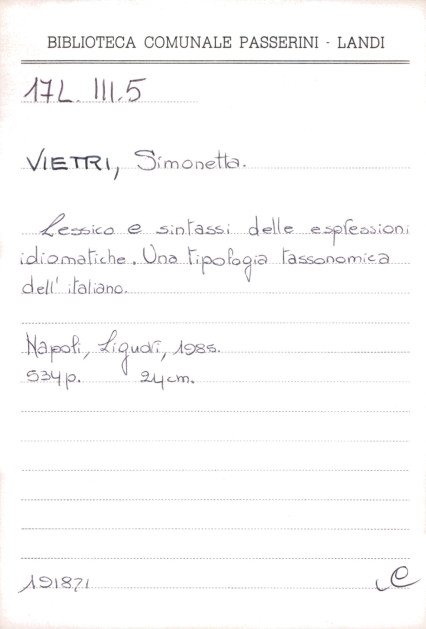 BIBLIOTECA COMUNALE PASSERINI - LANDI
17L. III.5
VIETRI, Simonetta.
Lessico e sintassi delle espressioni
idiomatiche. Una tipologia tassonomica
dell' italiano.
Napoli, Liguori, 1985.
534 p. 24 cm.
191871